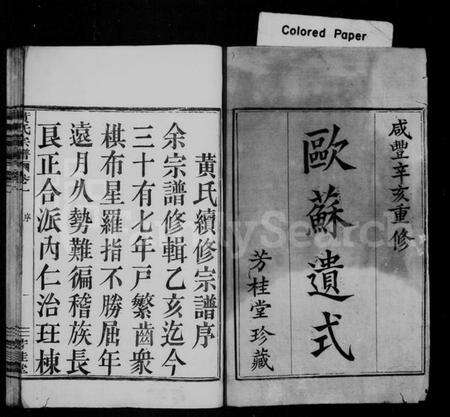 Colored Paper
咸豐辛亥重修
歐蘇遺式
芳桂堂珍藏
黃氏續修宗譜序
余宗譜修輯乙亥迄今
三十有七年戸繁齒衆
棋布星羅指不勝屈年
遠月久勢難徧稽族長
艮正合派內仁治班棟
黃氏宗譜
序
FamilySearch